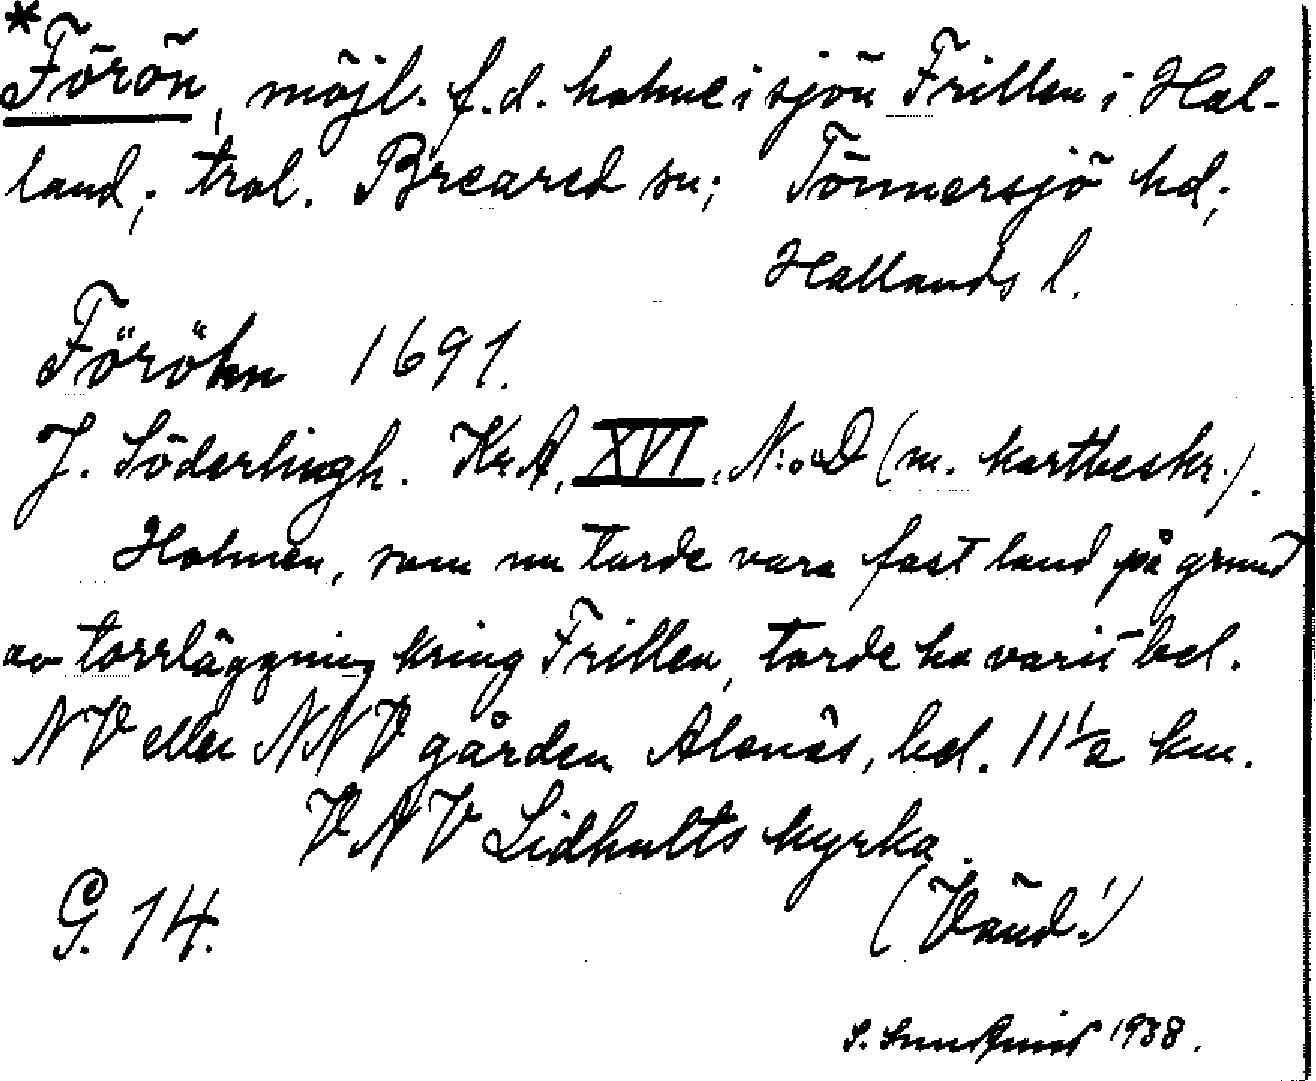 *Förön, möjl. f.d. holme i sjön Frillen i Hal-
land; trol. Breared sn; Tönnersjö hd;
Hallands l.
Föröhn 1691.
J. Söderlingh. Kr.A. XVI, N:o D (m. kartbeskr.).
Holmen, som nu torde vara fast land på grund
av torrläggning kring Frillen, torde ha varit bel.
NV eller NNV gården Alenäs, bel. 11½ km.
VNV Lidhults kyrka.
G. 14.
(Vänd!)
S. 1938.